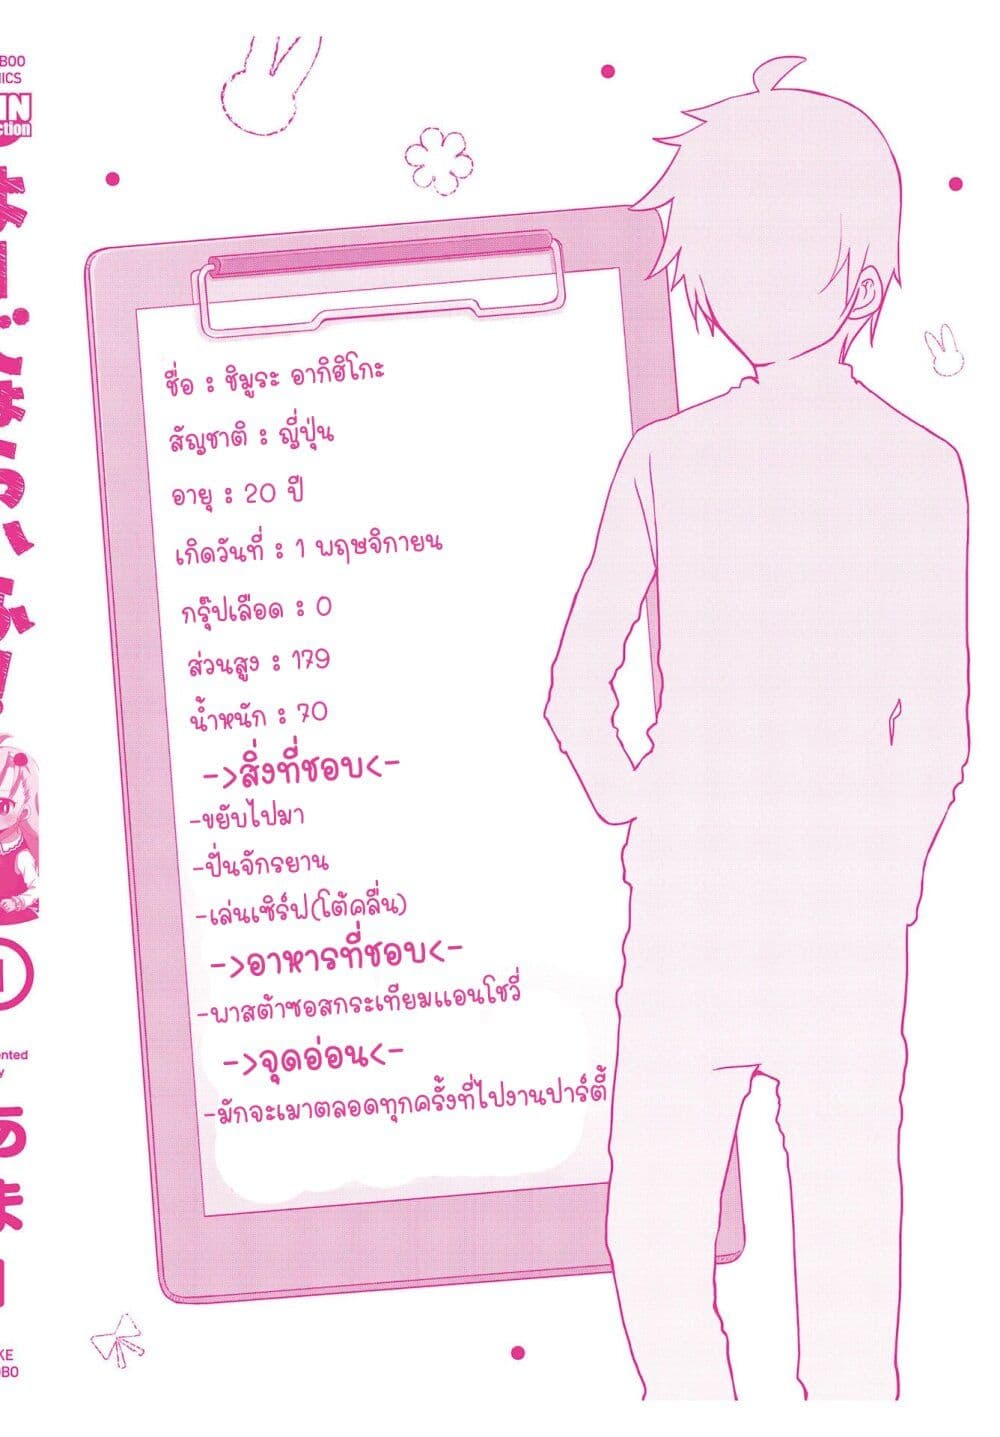 ชื่อ : ชิมูระ อากิฮิโกะ
สัญชาติ : ญี่ปุ่น
อายุ : 20 ปี
เกิดวันที่ : 1 พฤษจิกายน
กรุ๊ปเลือด : O
ส่วนสูง : 179
น้ำหนัก : 70
->สิ่งที่ชอบ<-
-ขยับไปมา
-ปั่นจักรยาน
-เล่นเซิร์ฟ(โต้คลื่น)
->อาหารที่ชอบ<-
-พาสต้าซอสกระเทียมแอนโชวี่
->จุดอ่อน<-
-มักจะเมาตลอดทุกครั้งที่ไปงานปาร์ตี้
BOO
ICS
ction
1
ented
y
あま
KE
OBO